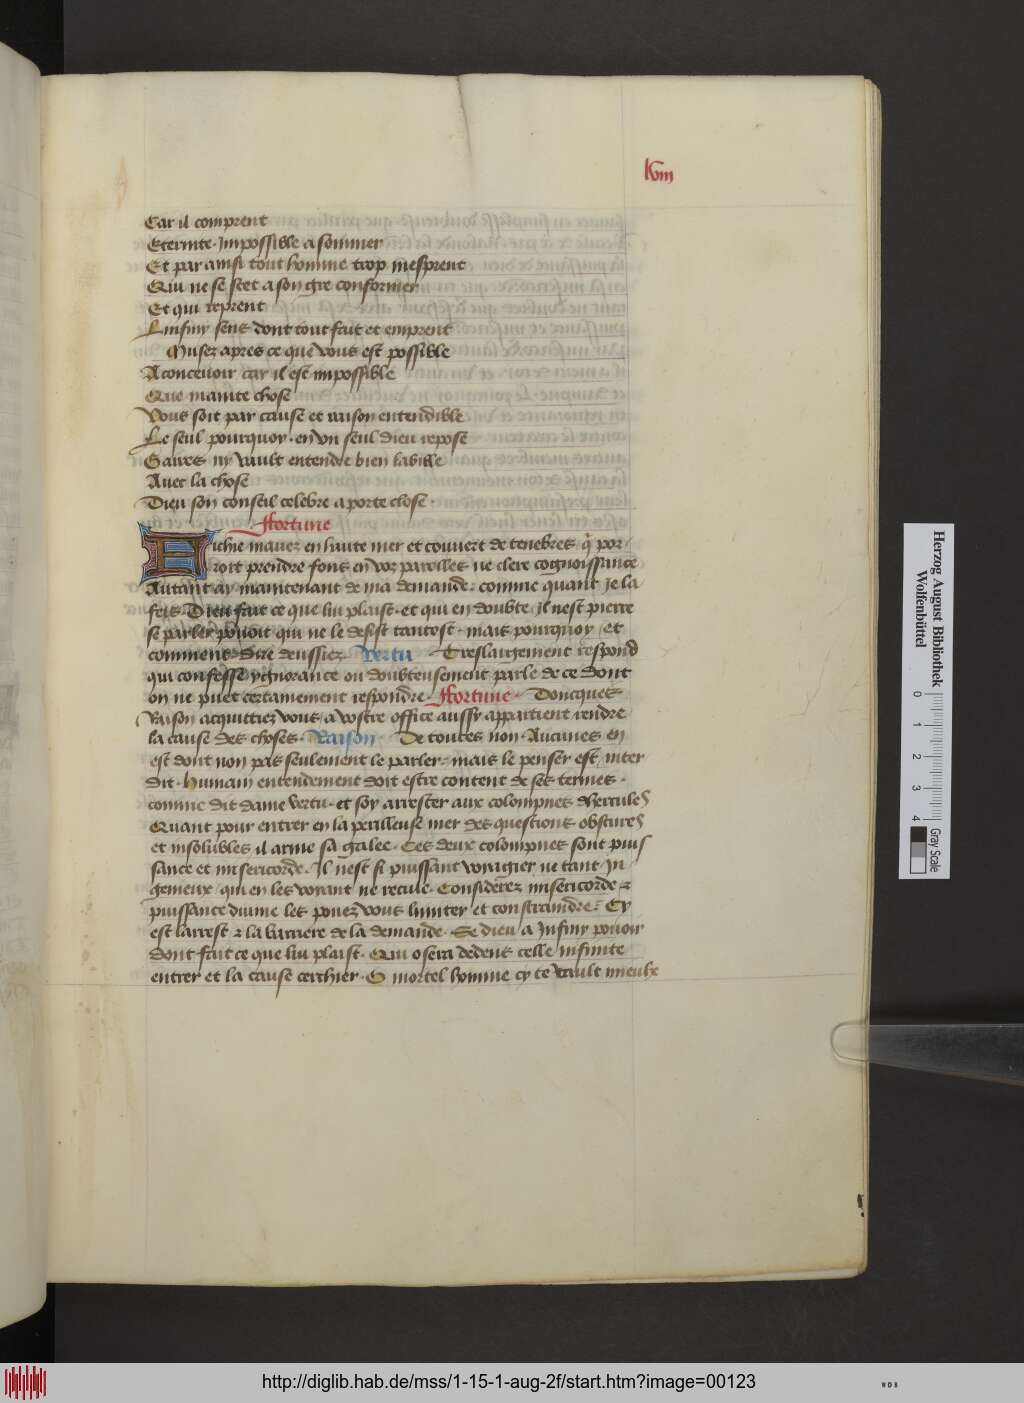 lviii
Car il comprent
Eternite · Impossible a sommer
Et par ainsi tout homme trop mesprent
Qui ne se scet a son gre conformer
Et qui reprent
Linfiny sens dont tout fait et emprent
Musez apres ce que vous est possible
A concevoir car il est impossible
Que mainte chose
Vous soit par cause et raison entendible
Le seul pourquoy · en vn seul dieu repose
Gaires ny vault entendre bien la bible
Avec la chose
Dieu son conseil celebre a porte close ·
Ffortune
Fichie mauez en haute mer et couvert de tenebres q̄ por
roit prendre fons en voz parolles ne clere cognoissance
Autant ay maintenant de ma demande · comme quant Je la
feis · Dieu fait ce que luy plaist · et qui en doubte Il nest pierre
se parler povoit qui ne le desist tantost · mais pourquoy et
comment dire deussiez · Vertu Treslargement respond
qui confesse ygnorance ou doubteusement parle de ce dont
on ne puet certainement respondre · Ffortune · Doncques
Raison acquittiez vous a vostre office aussy appartient rendre
la cause des choses · Raison · De toutes non · Aucunes en
est dont non pas seulement le parler · mais le penser est inter
dit · humain entendement doit estre content de ses termes ·
comme dit dame vertu · et soy arrester aux colompnes dhercules
Quant pour entrer en la perilleuse mer des questions obscures
et insolubles il arme sa galee · Ces deux colompnes sont puis
sance et misericorde · Il nest si puissant voyagier ne tant In
genieux qui en les voyant ne recule · Considerez misericorde ⁊
puissance divine les povez vous limiter et constraindre · Cy
est larrest ⁊ la barriere de la demande · Se dieu a Infiny povoir
dont fait ce que luy plaist · Qui osera dedens celle infinite
entrer et la cause cerchier · O mortel homme cy te vault mieulx
Herzog August Bibliothek
Wolfenbüttel
0 1 2 3 4
Gray Scale
http://diglib.hab.de/mss/1-15-1-aug-2f/start.htm?image=00123